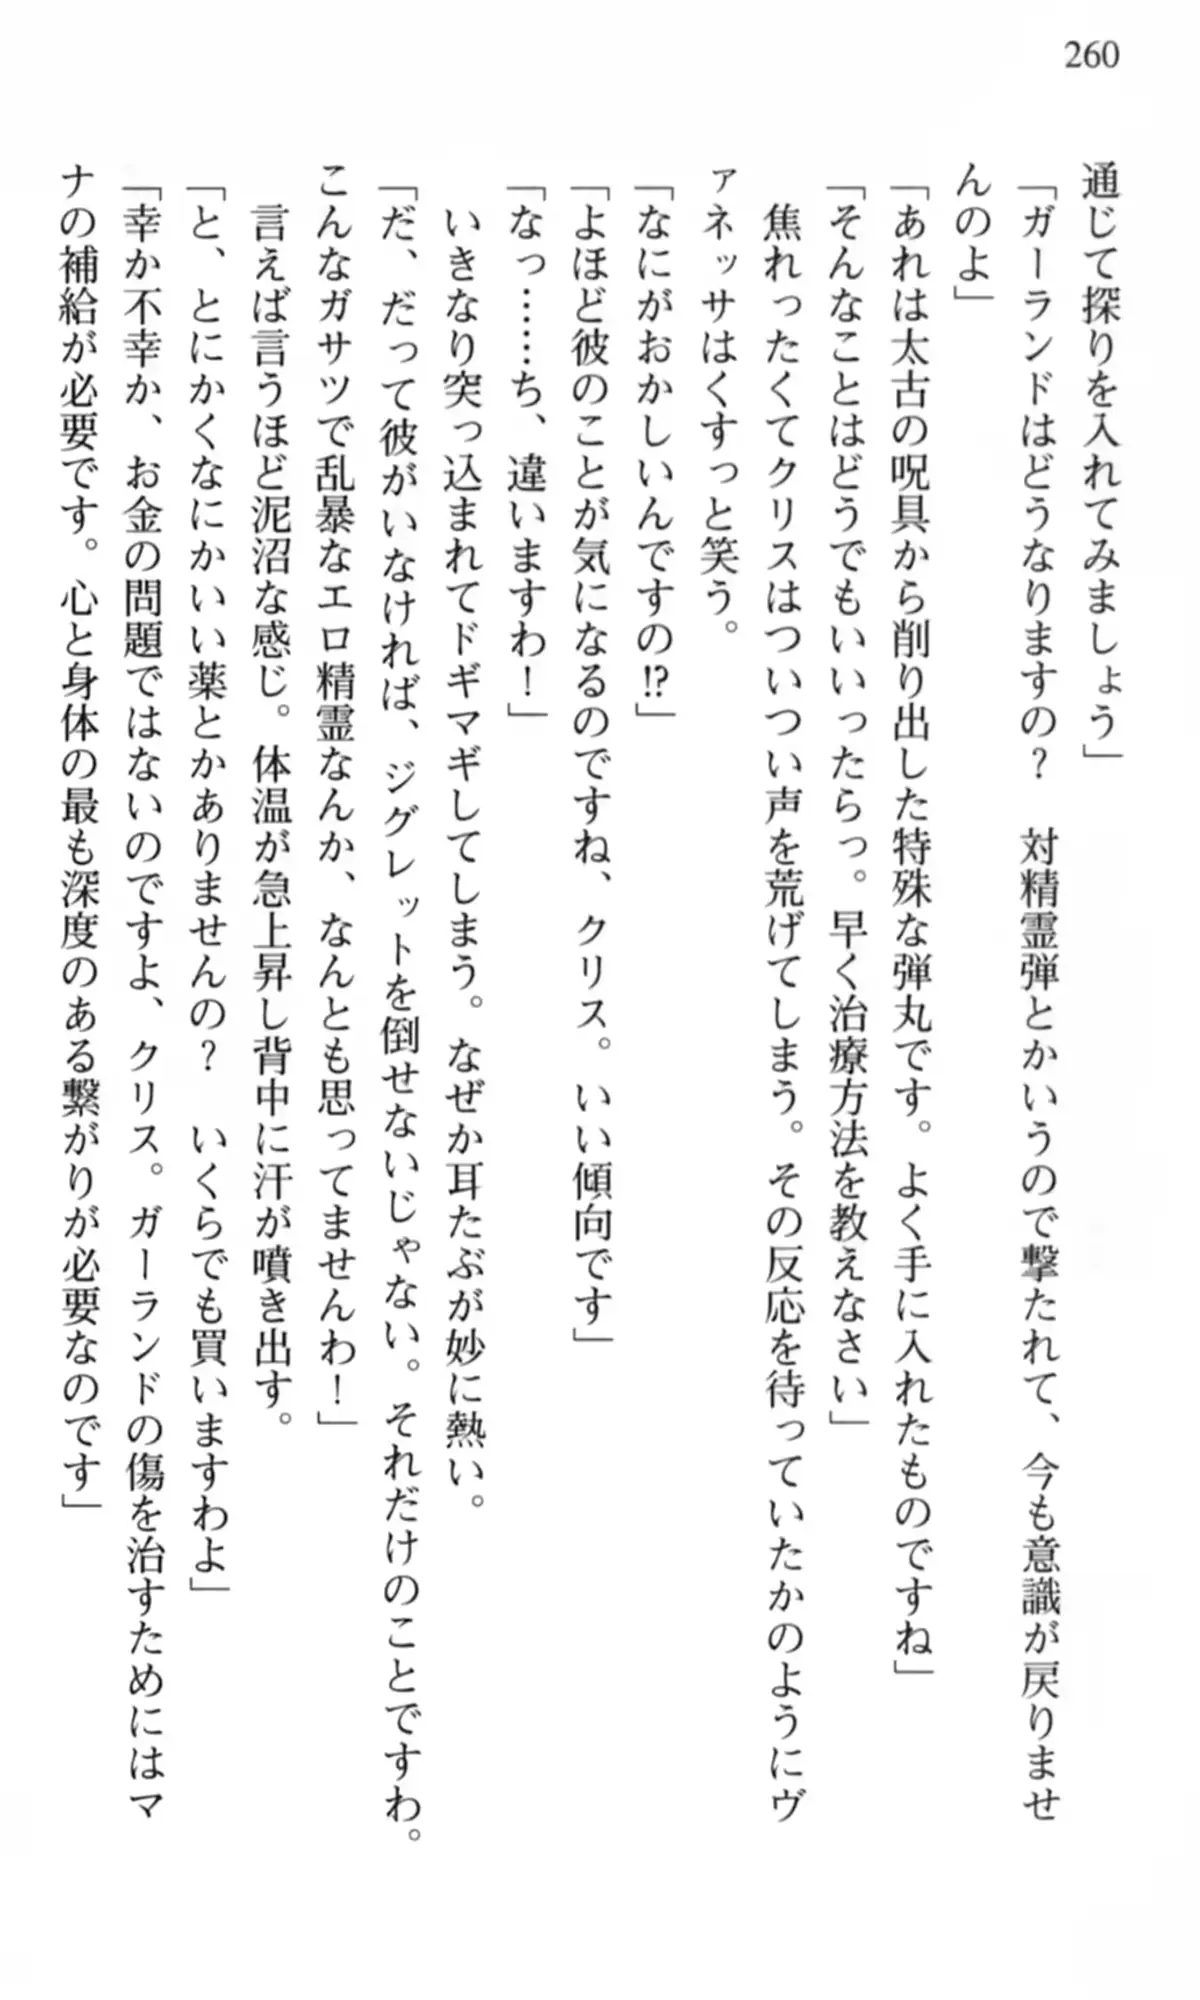 260
通じて探りを入れてみましょう」
「ガーランドはどうなりますの？　対精霊弾とかいうので撃たれて、今も意識が戻りませ
んのよ」
「あれは太古の呪具から削り出した特殊な弾丸です。よく手に入れたものですね」
「そんなことはどうでもいいったらっ。早く治療方法を教えなさい」
　焦れったくてクリスはついつい声を荒げてしまう。その反応を待っていたかのようにヴ
ァネッサはくすっと笑う。
「なにがおかしいんですの!?」
「よほど彼のことが気になるのですね、クリス。いい傾向です」
「なっ……ち、違いますわ！」
　いきなり突っ込まれてドギマギしてしまう。なぜか耳たぶが妙に熱い。
「だ、だって彼がいなければ、ジグレットを倒せないじゃない。それだけのことですわ。
こんなガサツで乱暴なエロ精霊なんか、なんとも思ってませんわ！」
　言えば言うほど泥沼な感じ。体温が急上昇し背中に汗が噴き出す。
「と、とにかくなにかいい薬とかありませんの？　いくらでも買いますわよ」
「幸か不幸か、お金の問題ではないのですよ、クリス。ガーランドの傷を治すためにはマ
ナの補給が必要です。心と身体の最も深度のある繋がりが必要なのです」